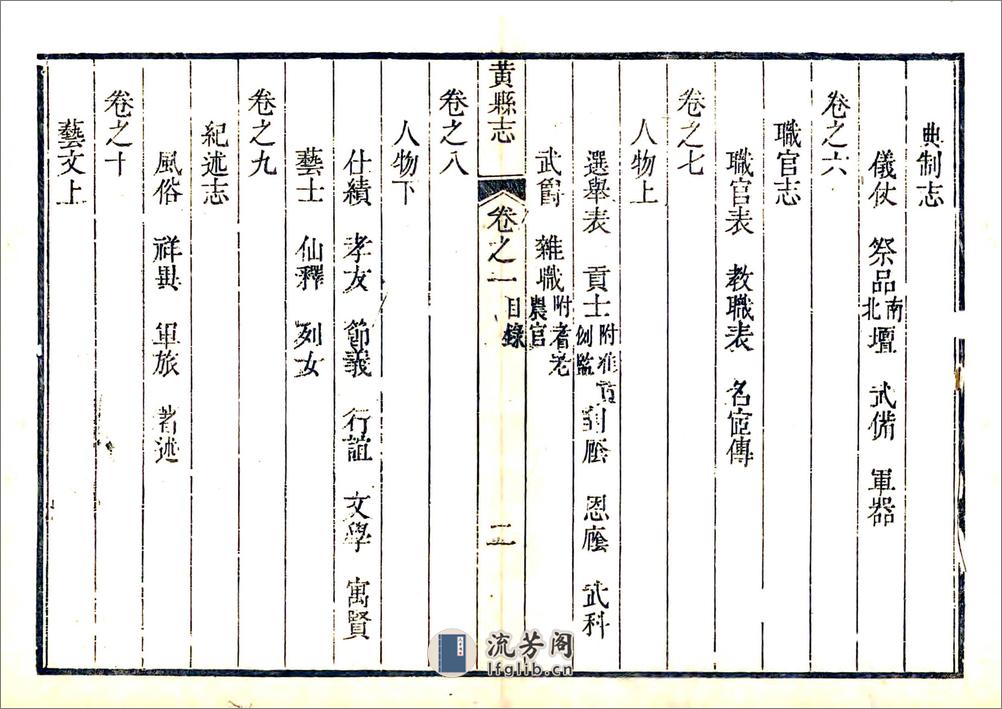 典制志
儀仗 祭品 南北壇 武備 軍器
卷之六
職官志
職官表 教職表 名宦傳
卷之七
人物上
選舉表 貢士 附准貢例監 封廕 恩廕 武科
武爵 雜職 附耆老農官
黃縣志 卷之一 目錄 二
卷之八
人物下
仕績 孝友 節義 行誼 文學 寓賢
藝士 仙釋 列女
卷之九
紀述志
風俗 祥異 軍旅 著述
卷之十
藝文上
流芳阁
lfglib.cn